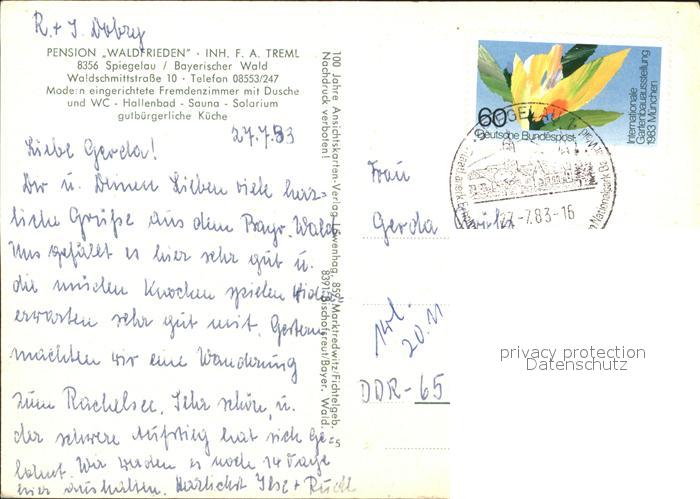 R. + I. Dobry
PENSION „WALDFRIEDEN" · INH. F. A. TREML
8356 Spiegelau / Bayerischer Wald
Waldschmittstraße 10 · Telefon 08553/247
Modern eingerichtete Fremdenzimmer mit Dusche
und WC · Hallenbad · Sauna · Solarium
gutbürgerliche Küche
27.7.83
Liebe Gerda!
Dir u. Deinen Lieben viele herz-
liche Grüße aus dem Bayr. Wald
Uns gefällt es hier sehr gut u.
die müden Knochen spielen wider
erwarten sehr gut mit. Gestern
machten wir eine Wanderung
zum Rachelsee. Sehr schön, u.
der schwere Aufstieg hat sich ge-
lohnt. Wir werden es noch 14 Tage
hier aushalten. Herzlichst Ilse + Rudi
100 Jahre Ansichtskarten-Verlag Löwenhag, 859 Marktredwitz/Fichtelgeb.
Nachdruck verboten!
8391 Bischofsreut/Bayer. Wald.
60
Deutsche Bundespost
Internationale
Gartenbauausstellung
1983 München
SPIEGELAU
27.-7.83-16
Nationalpark
Frau
Gerda
20.11
DDR-65
privacy protection
Datenschutz